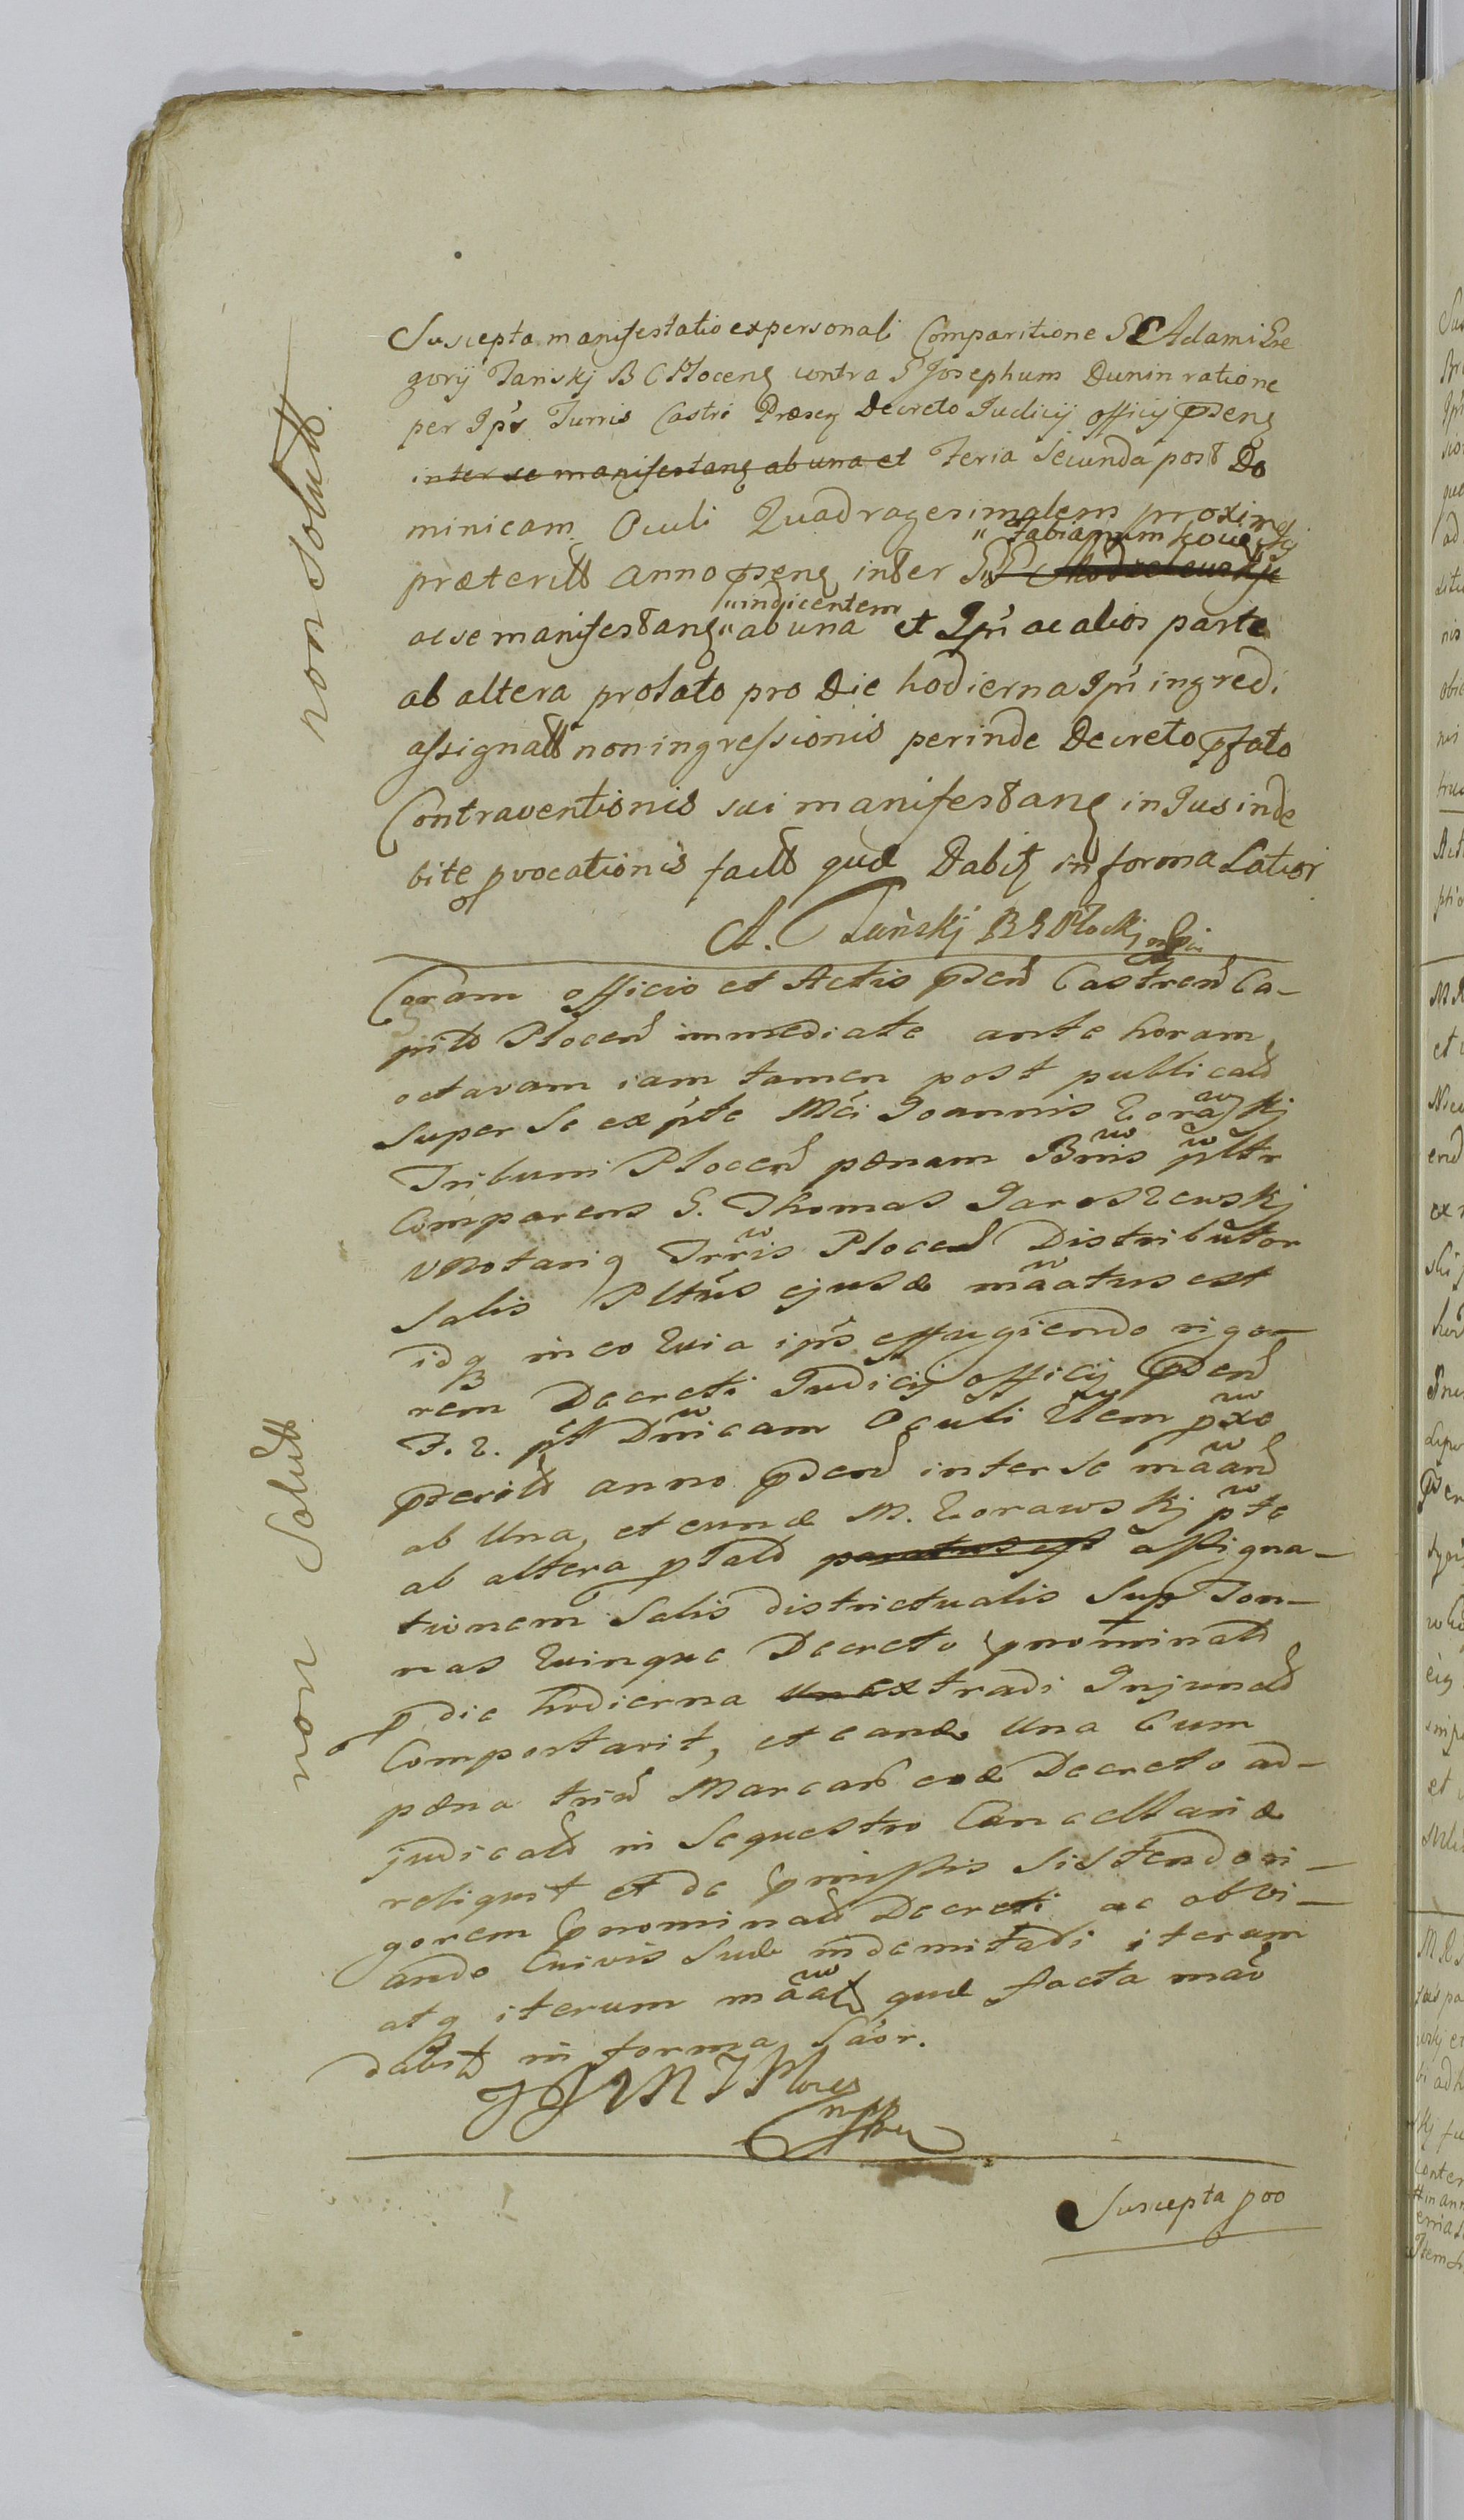 non Solutt
Suscepta manifestatio ex personali Comparitione G Adami Gre
gorij Tanskj B C Ploceng contra G Josephum Dunin ratione
per Ips Turris Castri Præseng Decreto Judicij officij præseng
inter se manifestang ab una et Feria Secunda post Do
minicam Oculi Quadragesimalem proxime
præteritt anno præseng inter G Fabianum
ac se manifestang indicentem ab una et Ipn ac alios parte
ab altera prolato pro Die hodierna Ipn ingredi
assignatt non ingressionis perinde Decreto præfato
Contraventionis sui manifestang in Jus inde
bite provocationis factt quæ Dabit in forma Latiori
A. Tanskj B G Plockj mpp
Coram officio et Actis præsend Castrend Ca-
pitt Plocend immediate ante horam
octavam iam tamen post publicatt
super se ex pte Mci Joannis Zorawskj
Tribuni Plocend pænam Bnis pltr
Comparens G. Thomas Jaroszewskj
VNotariq Trris Plocend Distributor
Salis Pltus ejusd mãatus est
idq in eo Quia ips effugiendo rigo-
rem Decreti Judicij officij præsend
F. 2. pt Dnicam Oculi Qlem pxe
præteritt anno præsend inter se mãand
ab Una, et eund M. Zorawskj pte
ab altera plad paratus est assigna-
tionem Salis districtualis Sup Ton-
nas Quinque Decreto prænominatt
p die hodierna extradi Injunctt
Comportavit, et eand Una Cum
pæna triu Marcar eod Decreto ad-
judicatt in Sequestro Cancellariæ
reliquit et de præmissis sistendo ri-
gorem prænominatt Decreti ac obvi-
ando Cuivis Suæ indemnitati iterum
atq iterum mãat quæ facta mãõ
dabit in forma Lãor.
non Solutt
Suscepta pro